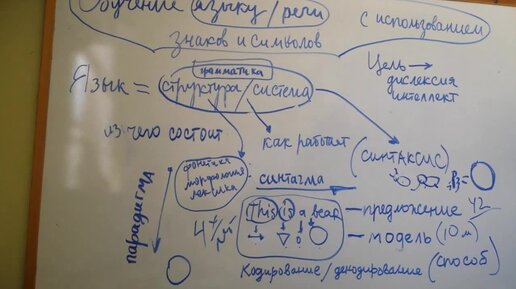 Обучение языку/речи с использованием
знаков и символов
грамматика
Цель → дислексия
интеллект
Язык = структура/система
из чего состоит
как работает
(синтаксис)
фонетика
морфология
лексика
синтагма
парадигма
This is a bear — предложение
— модель (10 м)
Кодирование/декодирование (способ)